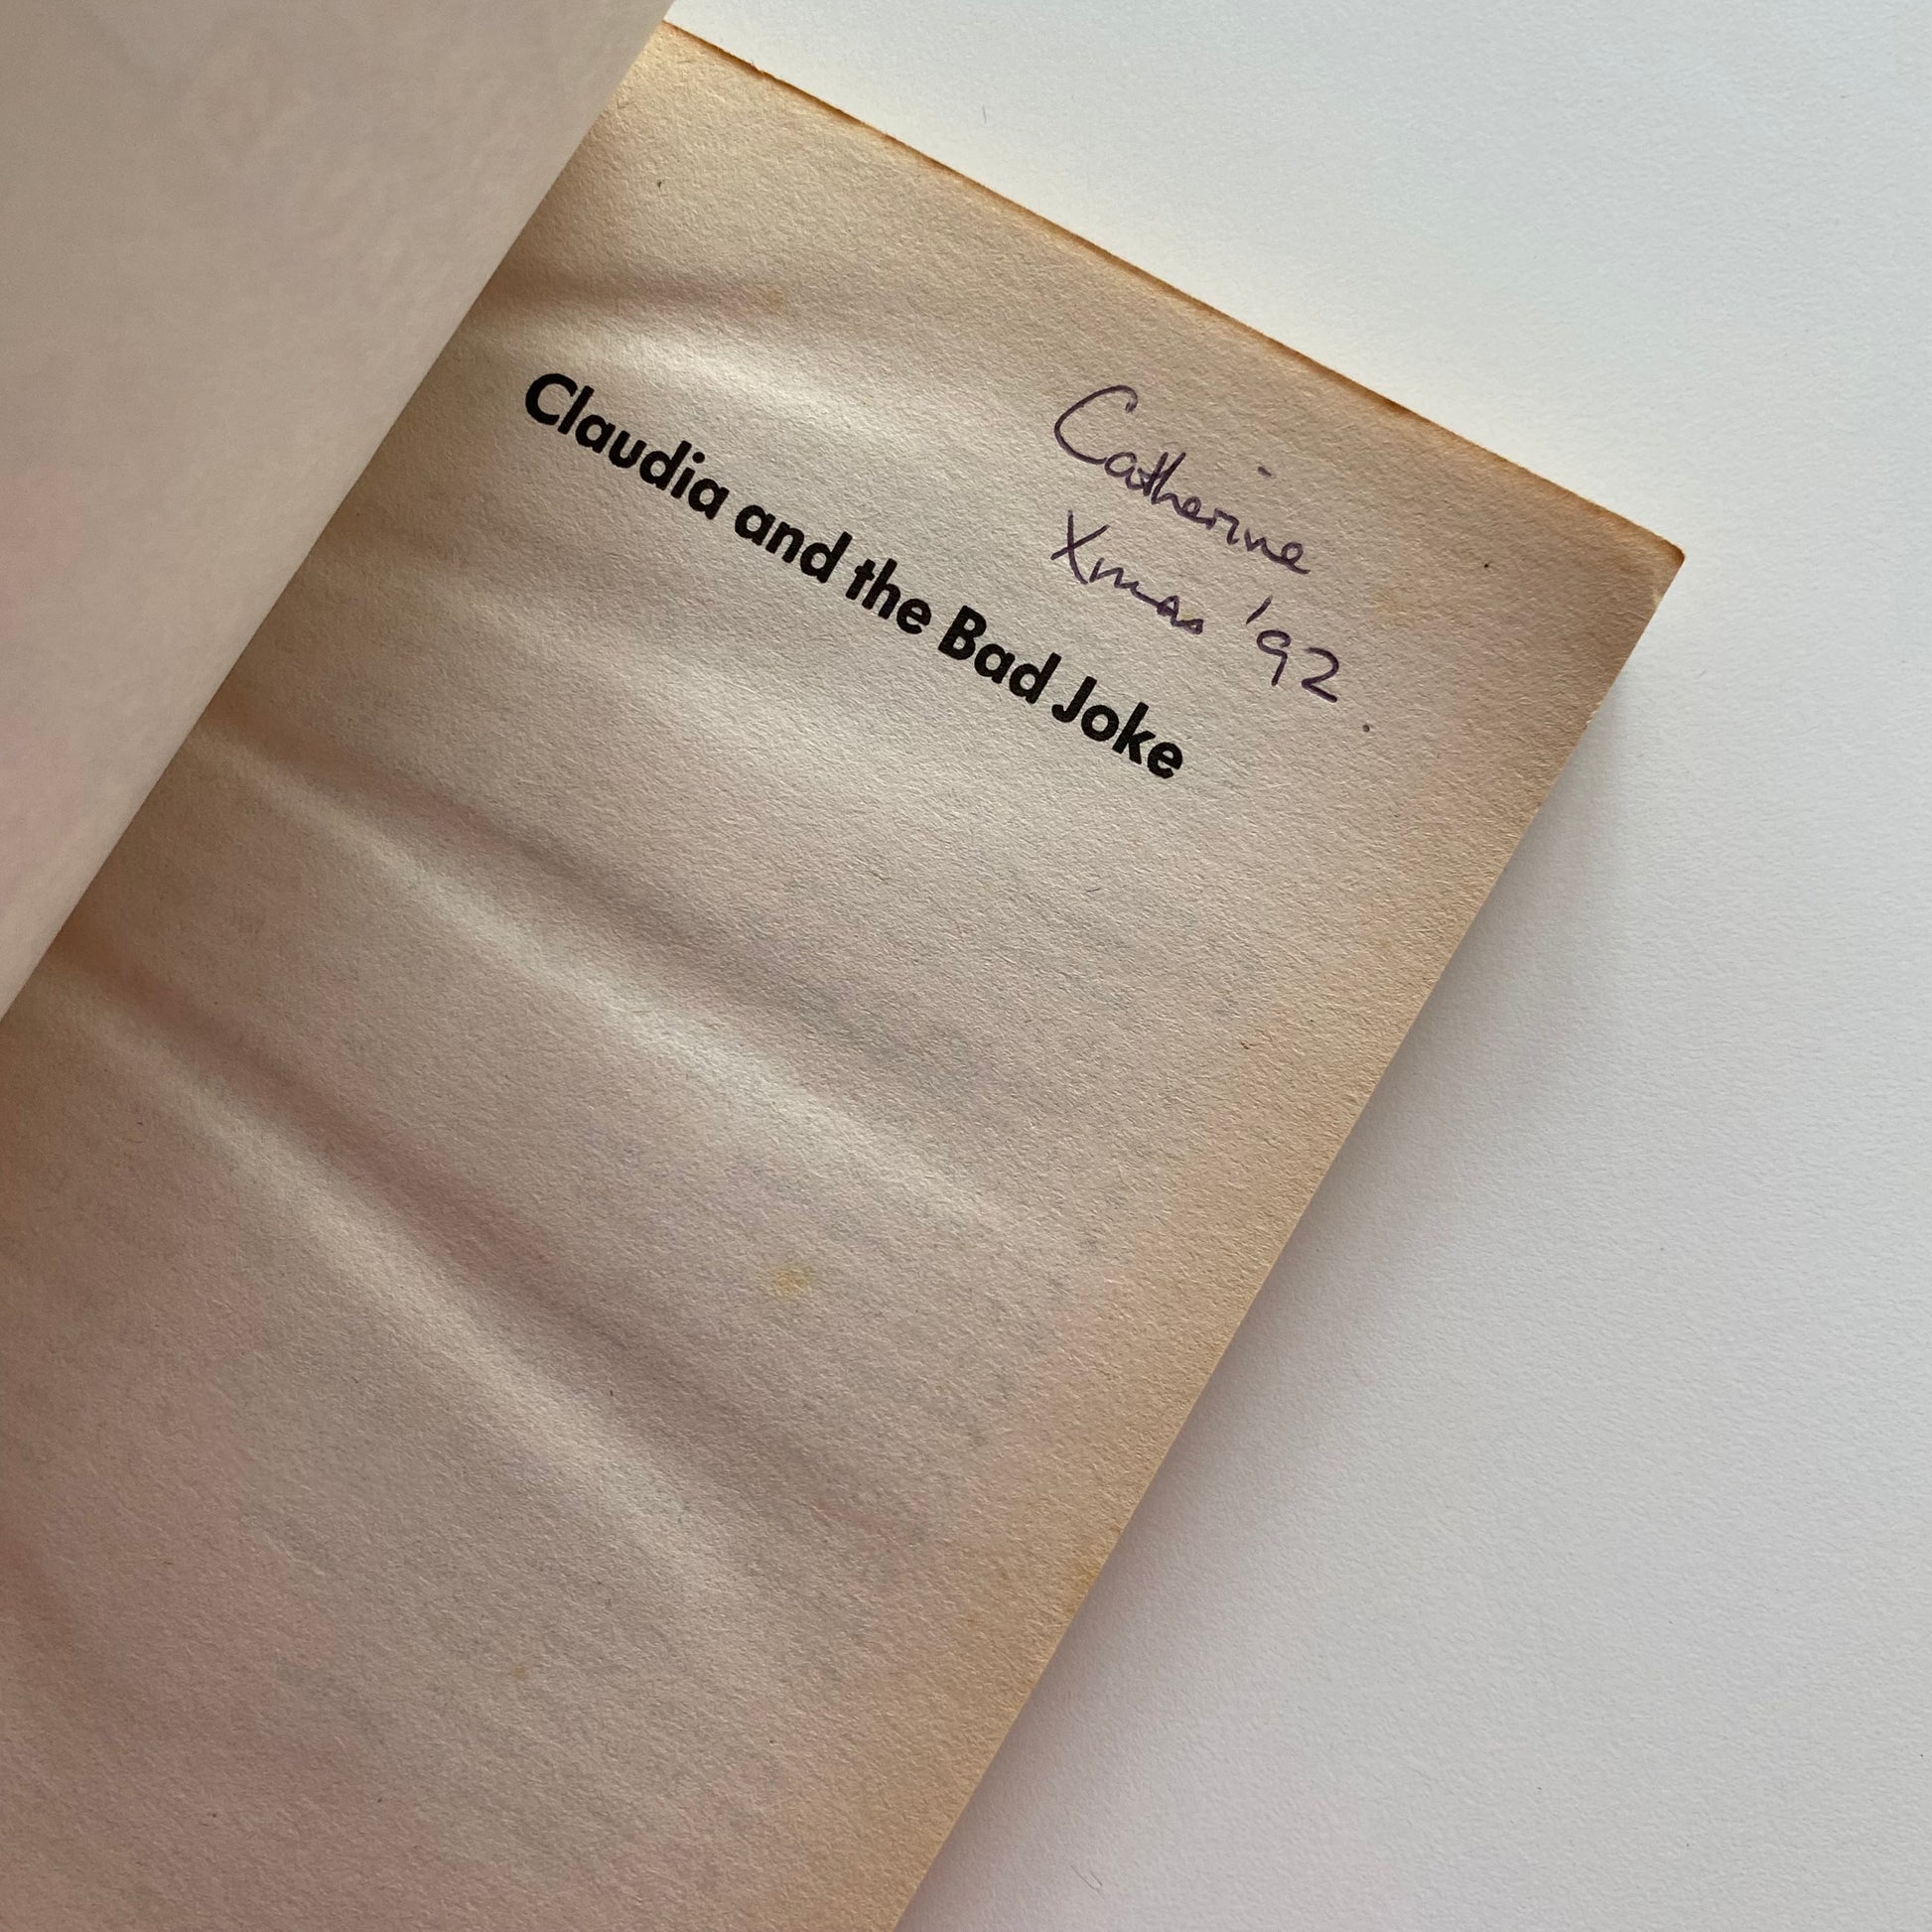 Catherine
Xmas '92.
Claudia and the Bad Joke